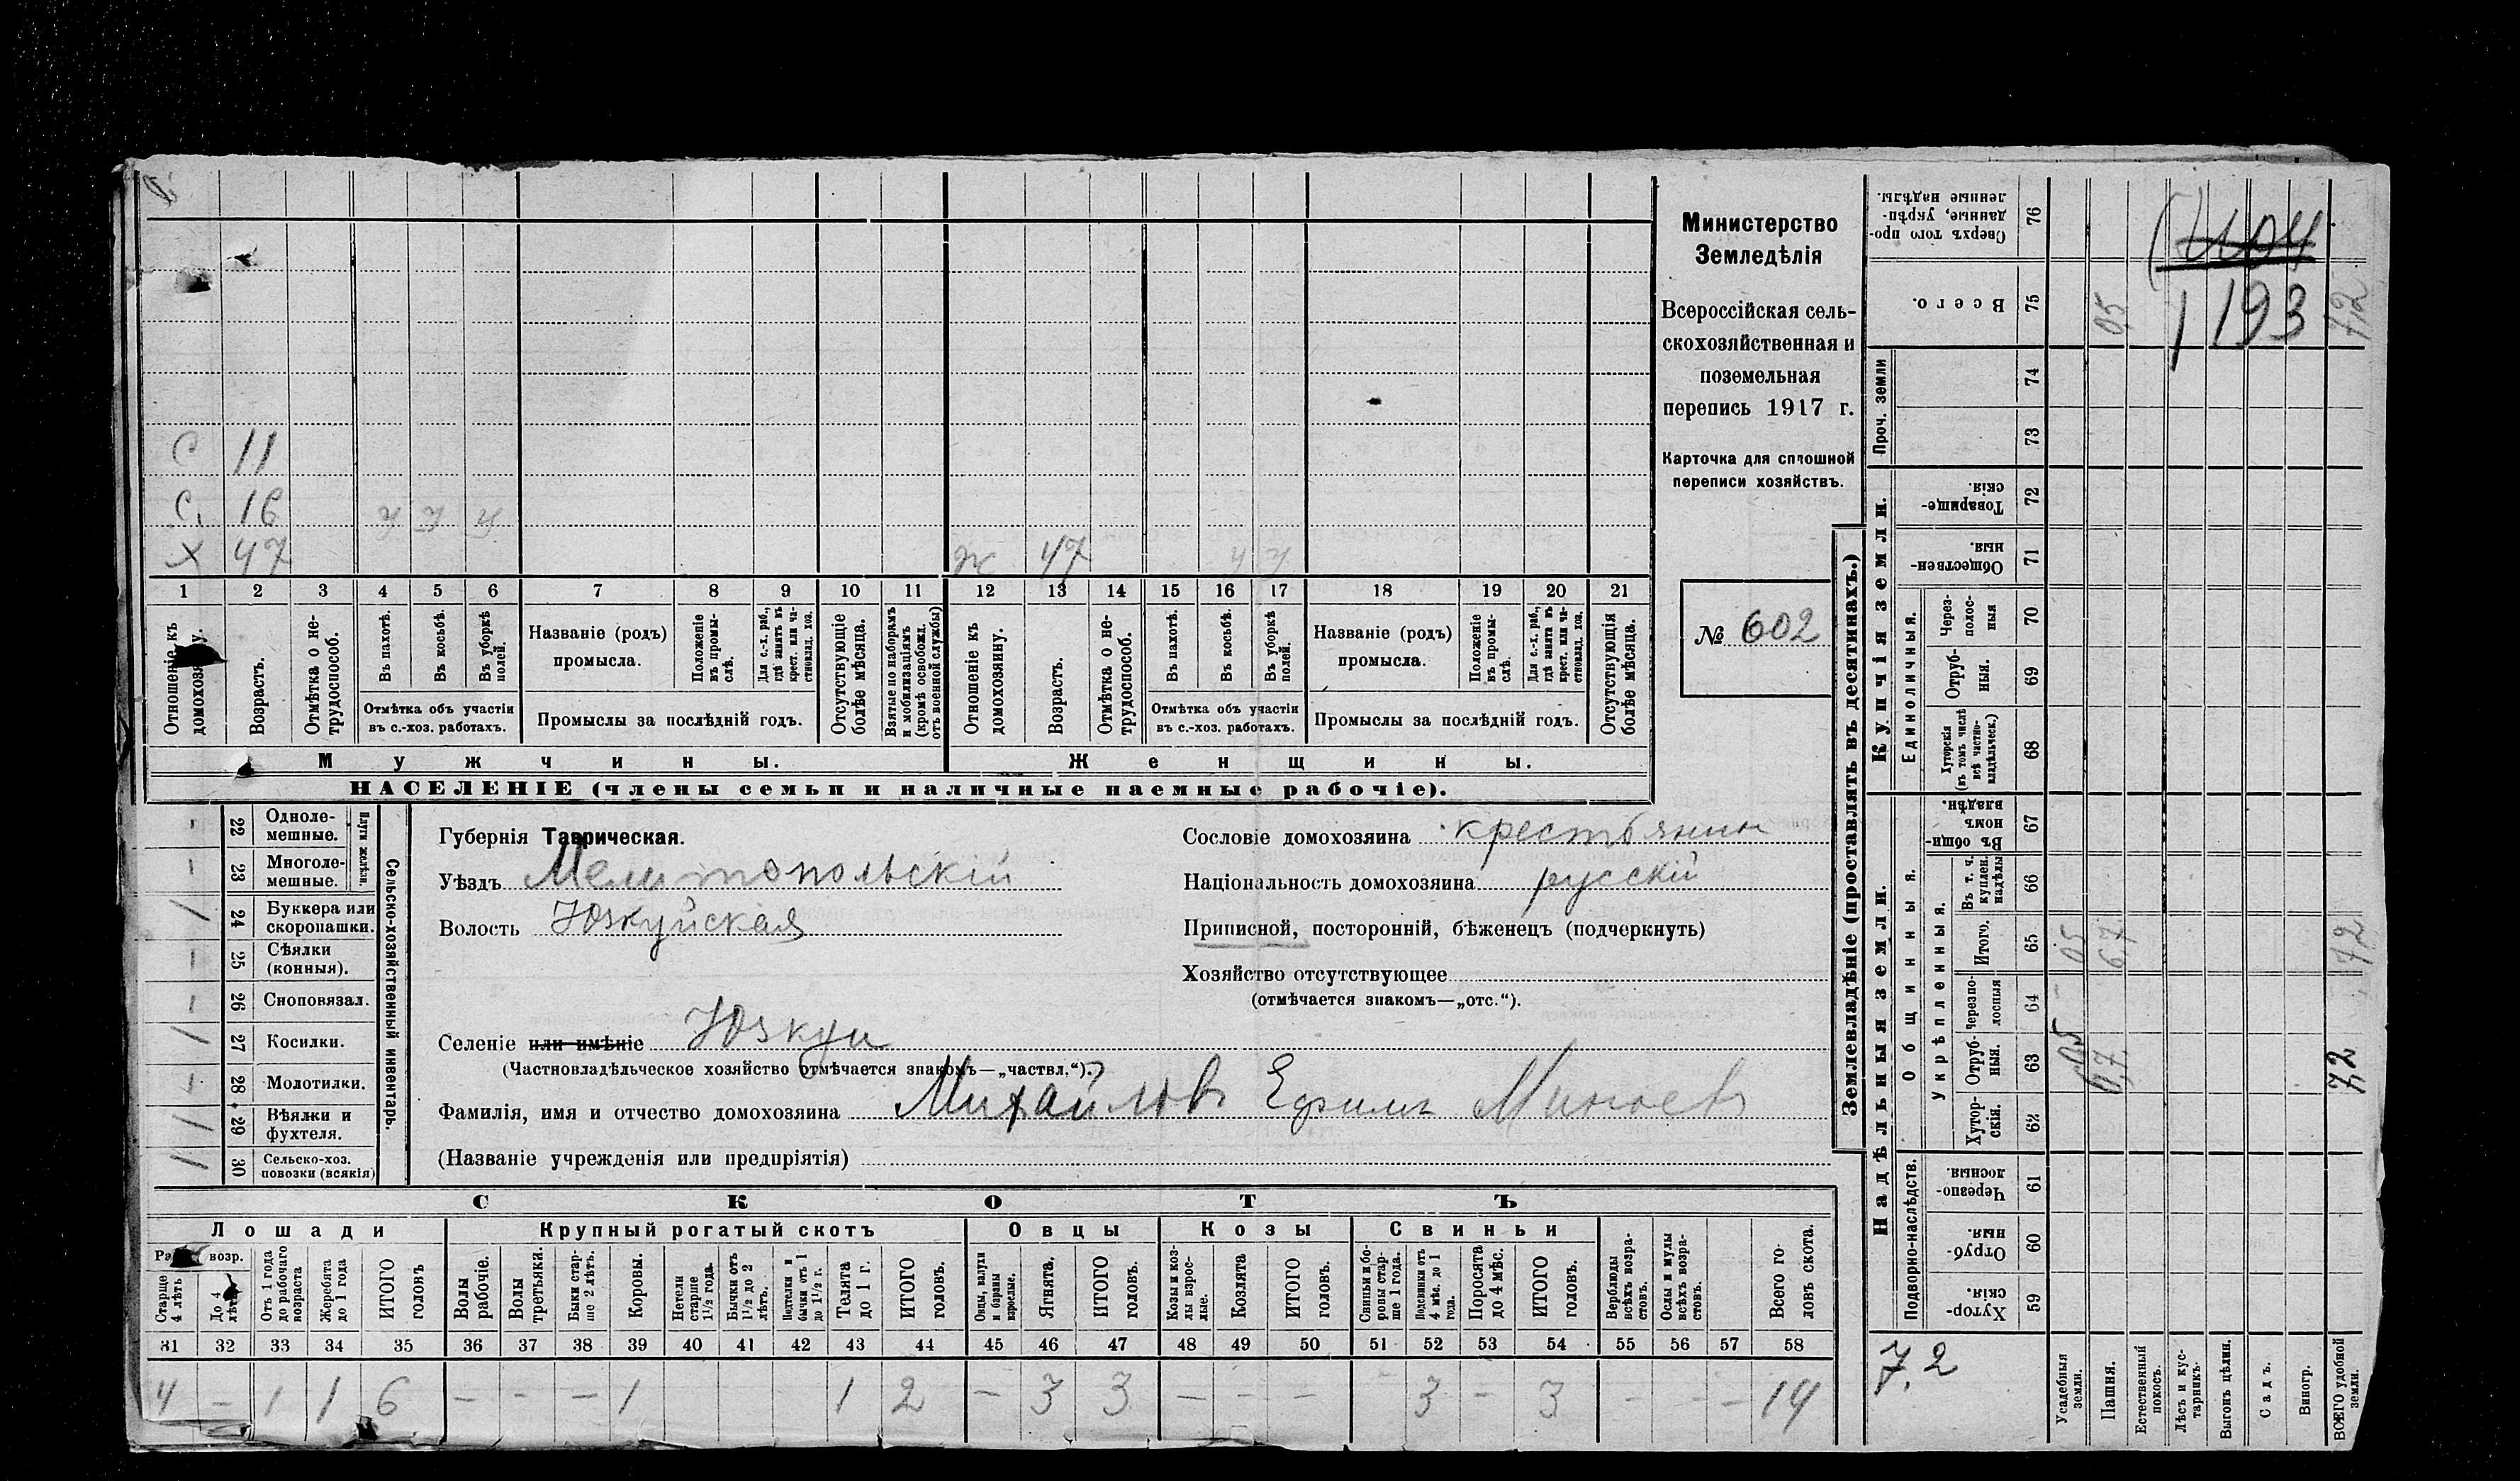 С 11
С. 16 У У У
Х 47 Ж 47 У У
1 2 3 4 5 6 7 8 9 10 11 12 13 14 15 16 17 18 19 20 21
Отношеніе къ домохозяину.
Возрастъ.
Отмѣтка о не-трудоспособ.
Въ пахотѣ.
Въ косьбѣ.
Въ уборкѣ полей.
Отмѣтка объ участіи
въ с.-хоз. работахъ.
Названіе (родъ)
промысла.
Положеніе въ промы-слѣ.
Для с.-х. раб., гдѣ занятъ въ крест. или ча-стновлад. хоз.
Промыслы за послѣдній годъ.
Отсутствующіе болѣе мѣсяца.
Взятые по наборамъ и мобилизаціямъ (кромѣ освобожд. отъ военной службы)
Отношеніе къ домохозяину.
Возрастъ.
Отмѣтка о не-трудоспособ.
Въ пахотѣ.
Въ косьбѣ.
Въ уборкѣ полей.
Отмѣтка объ участіи
въ с.-хоз. работахъ.
Названіе (родъ)
промысла.
Положеніе въ промы-слѣ.
Для с.-х. раб., гдѣ занята въ крест. или ча-стновлад. хоз.
Промыслы за послѣдній годъ.
Отсутствующія болѣе мѣсяца.
Мужчины. Женщины.
НАСЕЛЕНІЕ (члены семьи и наличные наемные рабочіе).
Министерство
Земледѣлія
Всероссійская сель-
скохозяйственная и
поземельная
перепись 1917 г.
Карточка для сплошной
переписи хозяйствъ.
№ 602
Плуги желѣзн.
Сельско-хозяйственный инвентарь.
- 22 Одноле-мешные.
- 23 Многоле-мешные.
1 24 Буккера или скоропашки.
- 25 Сѣялки (конныя).
- 26 Сноповязал.
1 27 Косилки.
- 28 Молотилки.
1 29 Вѣялки и фухтеля.
1 30 Сельско-хоз. повозки (всякія)
Губернія Таврическая.
Уѣздъ Мелитопольскій
Волость Юзкуйская
Селеніе или имѣніе Юзкуи
(Частновладѣльческое хозяйство отмѣчается знакомъ—„частвл.“).
Фамилія, имя и отчество домохозяина Михайловъ Ефимъ
(Названіе учрежденія или предпріятія)
Сословіе домохозяина крестьянин
Національность домохозяина русскій
Приписной, посторонній, бѣженецъ (подчеркнуть)
Хозяйство отсутствующее
(отмѣчается знакомъ—„отс.“).
СКОТЪ
Лошади Крупный рогатый скотъ Овцы Козы Свиньи
возр.
Старше 4 лѣтъ
До 4 лѣтъ
Отъ 1 года до рабочаго возраста
Жеребята до 1 года
ИТОГО головъ
Волы рабочіе.
Волы третьяки.
Быки стар-ше 2 лѣтъ.
Коровы.
Нетели старше 1½ года.
Бычки отъ 1½ до 2 лѣтъ.
Подтелки и бычки отъ 1 до 1½ г.
Телята до 1 г.
ИТОГО головъ.
Овцы, валухи и бараны взрослые.
Ягнята.
ИТОГО головъ.
Козы и коз-лы взрос-лые.
Козлята
ИТОГО головъ.
Свиньи и бо-ровы стар-ше 1 года.
Подсвинки отъ 4 мѣс. до 1 года.
Поросята до 4 мѣс.
ИТОГО головъ.
Верблюды всѣхъ возра-стовъ.
Ослы и мулы всѣхъ возра-стовъ.
Всего го-ловъ скота.
31 32 33 34 35 36 37 38 39 40 41 42 43 44 45 46 47 48 49 50 51 52 53 54 55 56 57 58
4 – 1 1 6 – - – 1 1 2 – 3 3 – - – - 3 - 3 - - – 14
Землевладѣніе (проставлять въ десятинахъ.)
Купчія земли.
Надѣльныя земли.
Проч. земли
Единоличныя.
Общинныя.
Укрѣпленныя.
Подворно-наслѣдств.
Сверхъ того про-данные, укрѣп-ленные надѣлы. 76
Всего. 75 05 7,2
74
73
Товарище-скія. 72
Обществен-ныя. 71
Черезполос-ныя 70
Отруб-ныя. 69
Хуторскія (въ томъ числѣ всѣ частно-владѣльческ.) 68
Въ общин-номъ владѣн. 67
Въ т. ч. куплен. надѣлы 66
Итого. 65 05 6,7 7,2
Черезпо-лосныя 64
Отруб-ныя. 63 05 6,7 7,2
Хутор-скія. 62
Черезпо-лосныя. 61
Отруб-ныя. 60
Хутор-скія. 59
1193
7,2
Усадебныя земли.
Пашня.
Естественный покосъ.
Лѣсъ и кус-тарникъ.
Выгонъ цѣлин.
Садъ.
Виногр.
ВСЕГО удобной земли.